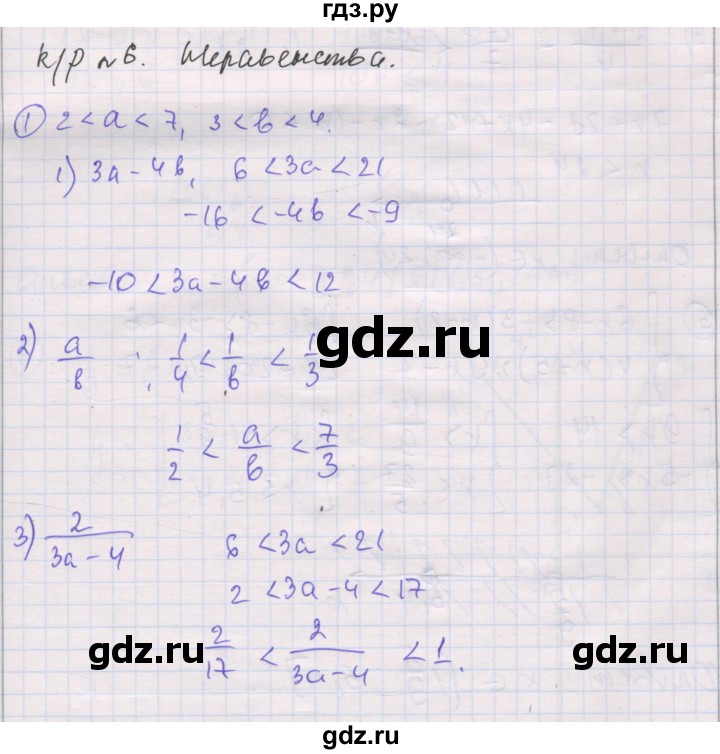 гдз.ру
К/Р №6. Неравенства.
① 2 < a < 7, 3 < b < 4.
1) 3a - 4b, 6 < 3a < 21
-16 < -4b < -9
-10 < 3a - 4b < 12
gdz.ru
2) a/b ; 1/4 < 1/b < 1/3
1/2 < a/b < 7/3
3) 2/(3a - 4) 6 < 3a < 21
2 < 3a - 4 < 17
2/17 < 2/(3a - 4) < 1.
gdz.ru gdz.ru
gdz.ru